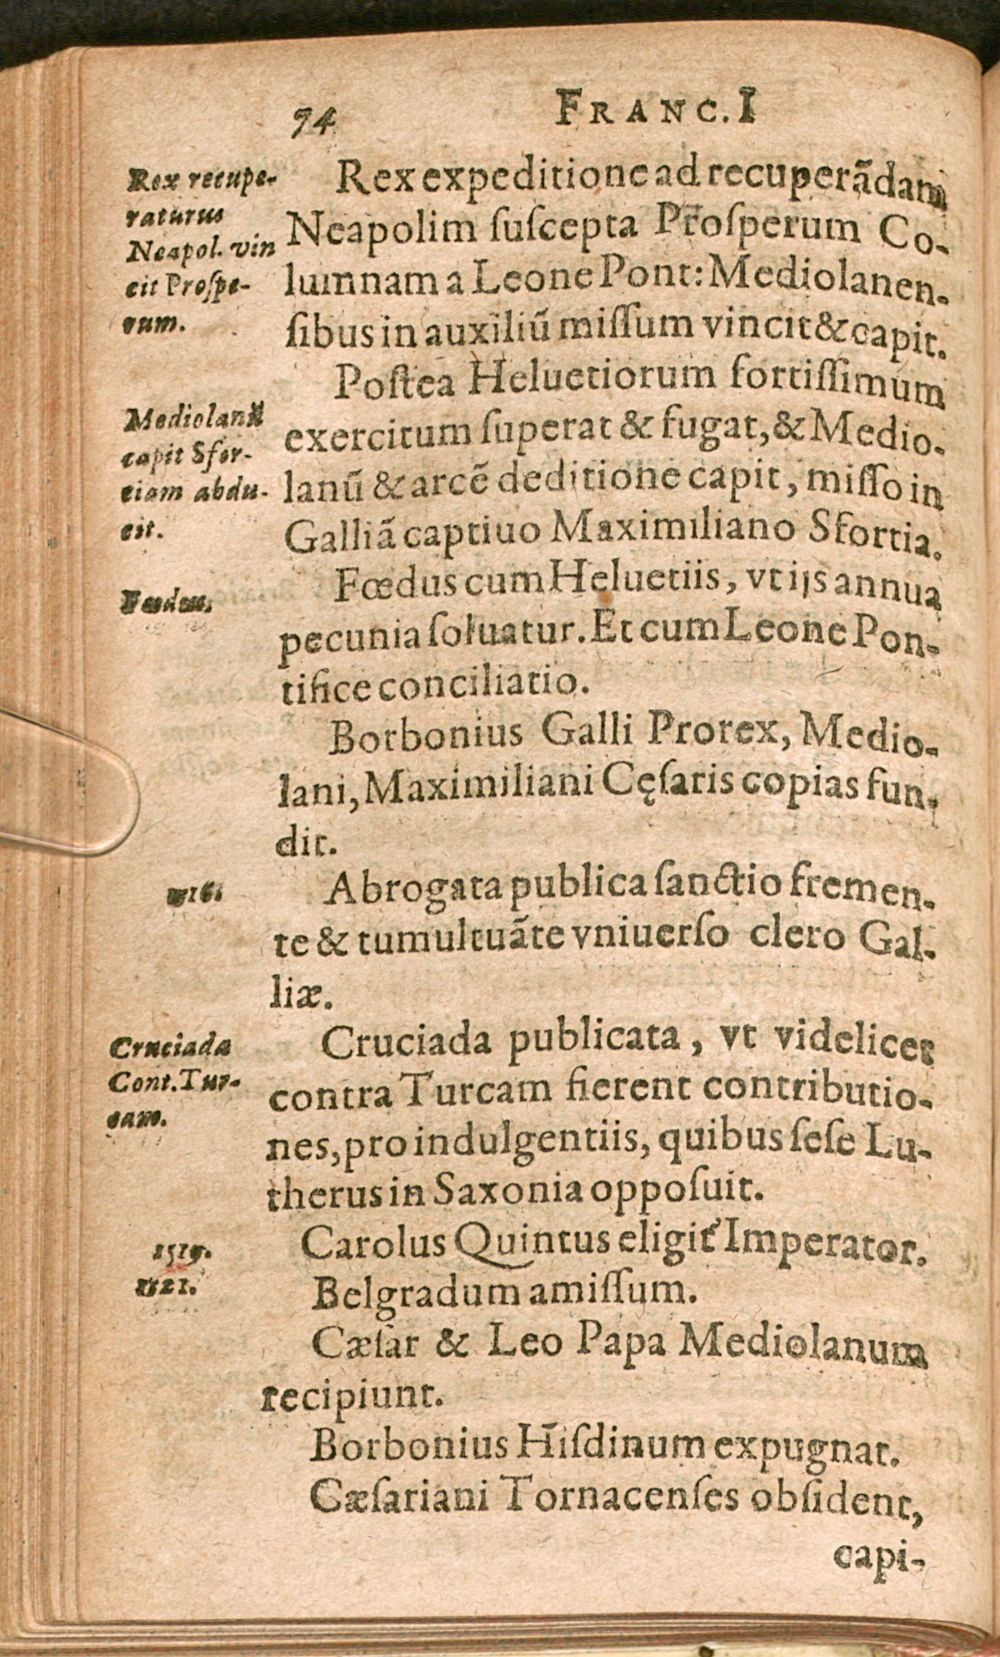 94 FRANC. I
Rex recupe-
raturus
Neapol. vin
cit Prospe-
rum.
Rex expeditione ad recuperãdam
Neapolim ſuſcepta Proſperum Co-
lumnam a Leone Pont: Mediolanen-
ſibus in auxiliũ miſſum vincit & capit.
Mediolanũ
capit Sfor-
tiam abdu-
cit.
Poſtea Heluetiorum fortiſſimum
exercitum ſuperat & fugat, & Medio-
lanũ & arcẽ deditione capit, miſſo in
Galliã captiuo Maximiliano Sfortia.
Fœdus.
Fœdus cum Heluetiis, vt ijs annua
pecunia ſoluatur. Et cum Leone Pon-
tifice conciliatio.
Borbonius Galli Prorex, Medio-
lani, Maximiliani Cęſaris copias fun-
dit.
1516.
Abrogata publica ſanctio fremen-
te & tumultuãte vniuerſo clero Gal-
liæ.
Cruciada
Cont. Tur-
cam.
Cruciada publicata, vt videlicet
contra Turcam fierent contributio-
nes, pro indulgentiis, quibus ſeſe Lu-
therus in Saxonia oppoſuit.
1519.
Carolus Quintus eligit᷑ Imperator.
1521.
Belgradum amiſſum.
Cæſar & Leo Papa Mediolanum
recipiunt.
Borbonius Hiſdinum expugnat.
Cæſariani Tornacenſes obſident,
capi-